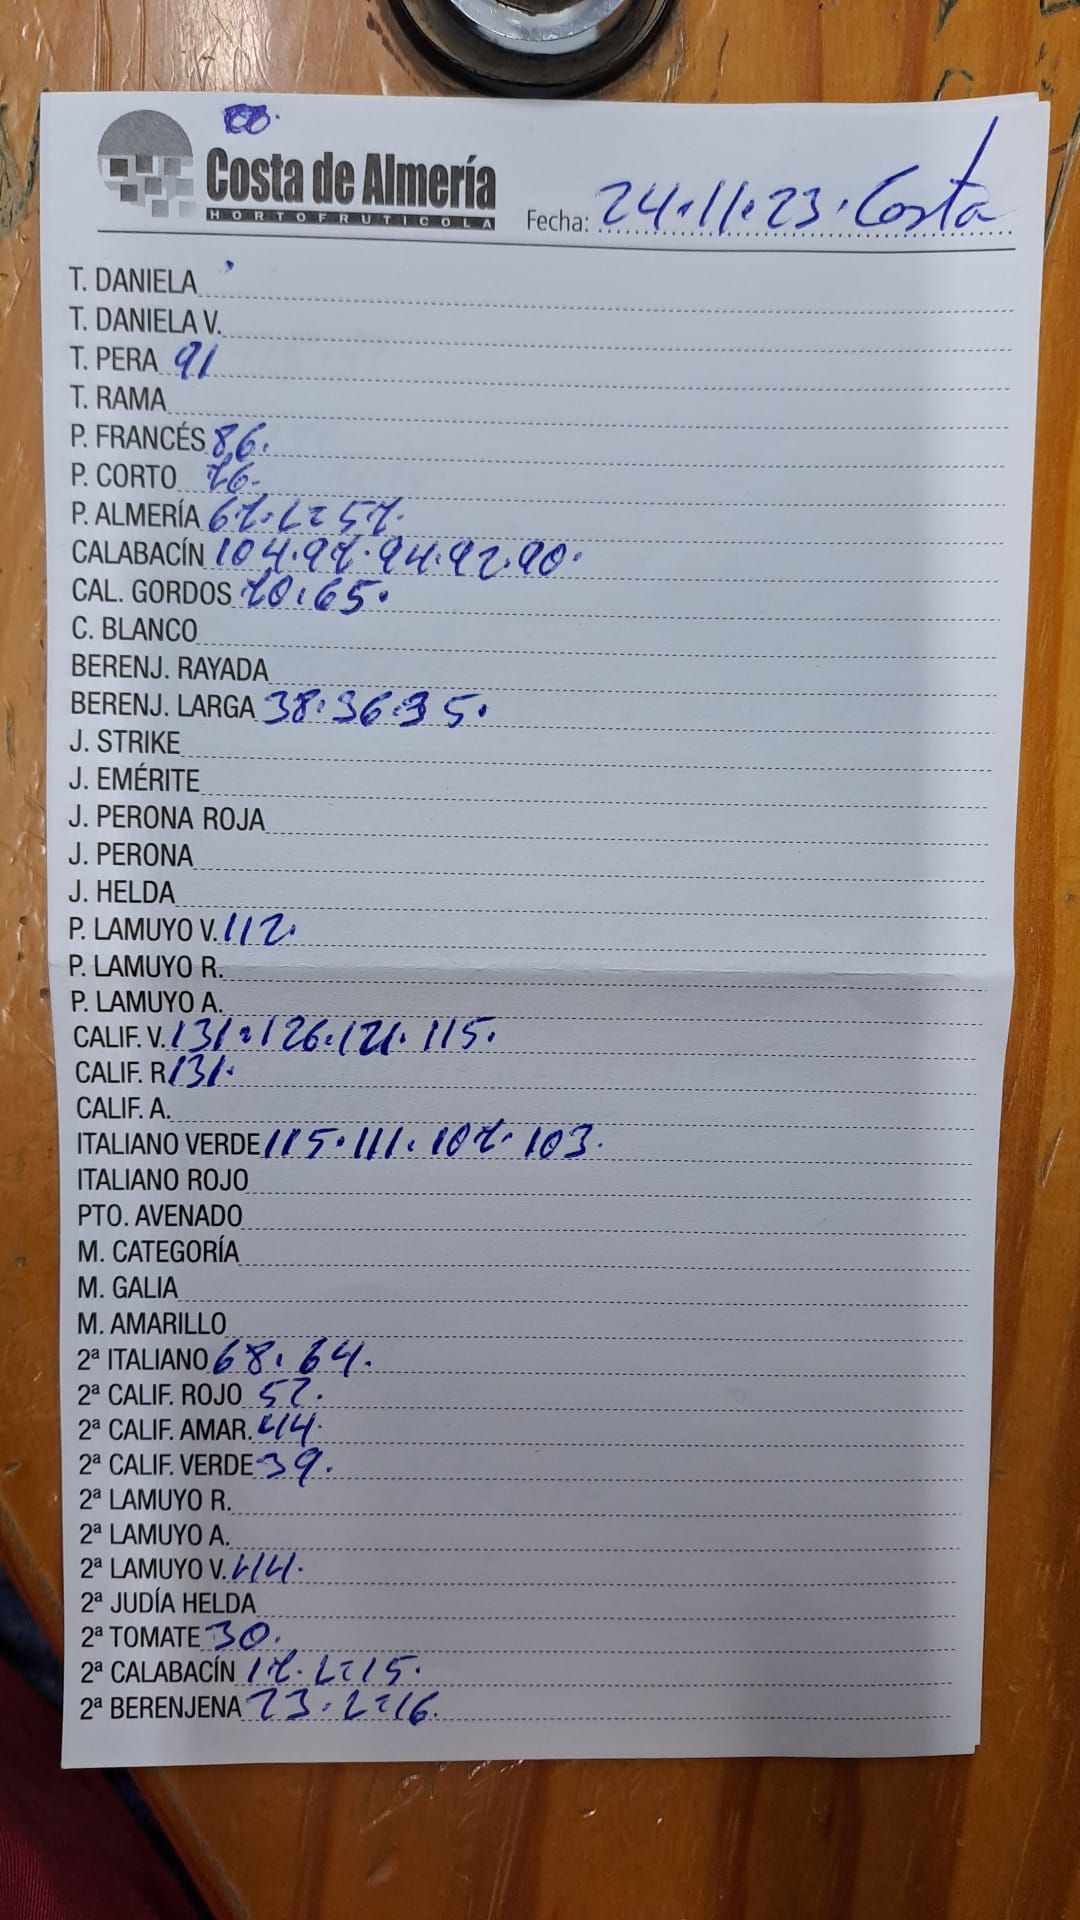 Costa de Almería
HORTOFRUTICOLA
Fecha: 24.11.23. Costa
T. DANIELA
T. DANIELA V.
T. PERA 91
T. RAMA
P. FRANCÉS 86.
P. CORTO 76.
P. ALMERÍA 67. L= 57.
CALABACÍN 104. 97. 94. 92. 90.
CAL. GORDOS 70. 65.
C. BLANCO
BERENJ. RAYADA
BERENJ. LARGA 38. 36. 35.
J. STRIKE
J. EMÉRITE
J. PERONA ROJA
J. PERONA
J. HELDA
P. LAMUYO V. 112.
P. LAMUYO R.
P. LAMUYO A.
CALIF. V. 131. 126. 121. 115.
CALIF. R 131.
CALIF. A.
ITALIANO VERDE 115. 111. 107. 103.
ITALIANO ROJO
PTO. AVENADO
M. CATEGORÍA
M. GALIA
M. AMARILLO
2ª ITALIANO 68. 64.
2ª CALIF. ROJO 52.
2ª CALIF. AMAR. 44.
2ª CALIF. VERDE 39.
2ª LAMUYO R.
2ª LAMUYO A.
2ª LAMUYO V. 44.
2ª JUDÍA HELDA
2ª TOMATE 30.
2ª CALABACÍN 17. L=15.
2ª BERENJENA 23. L=16.